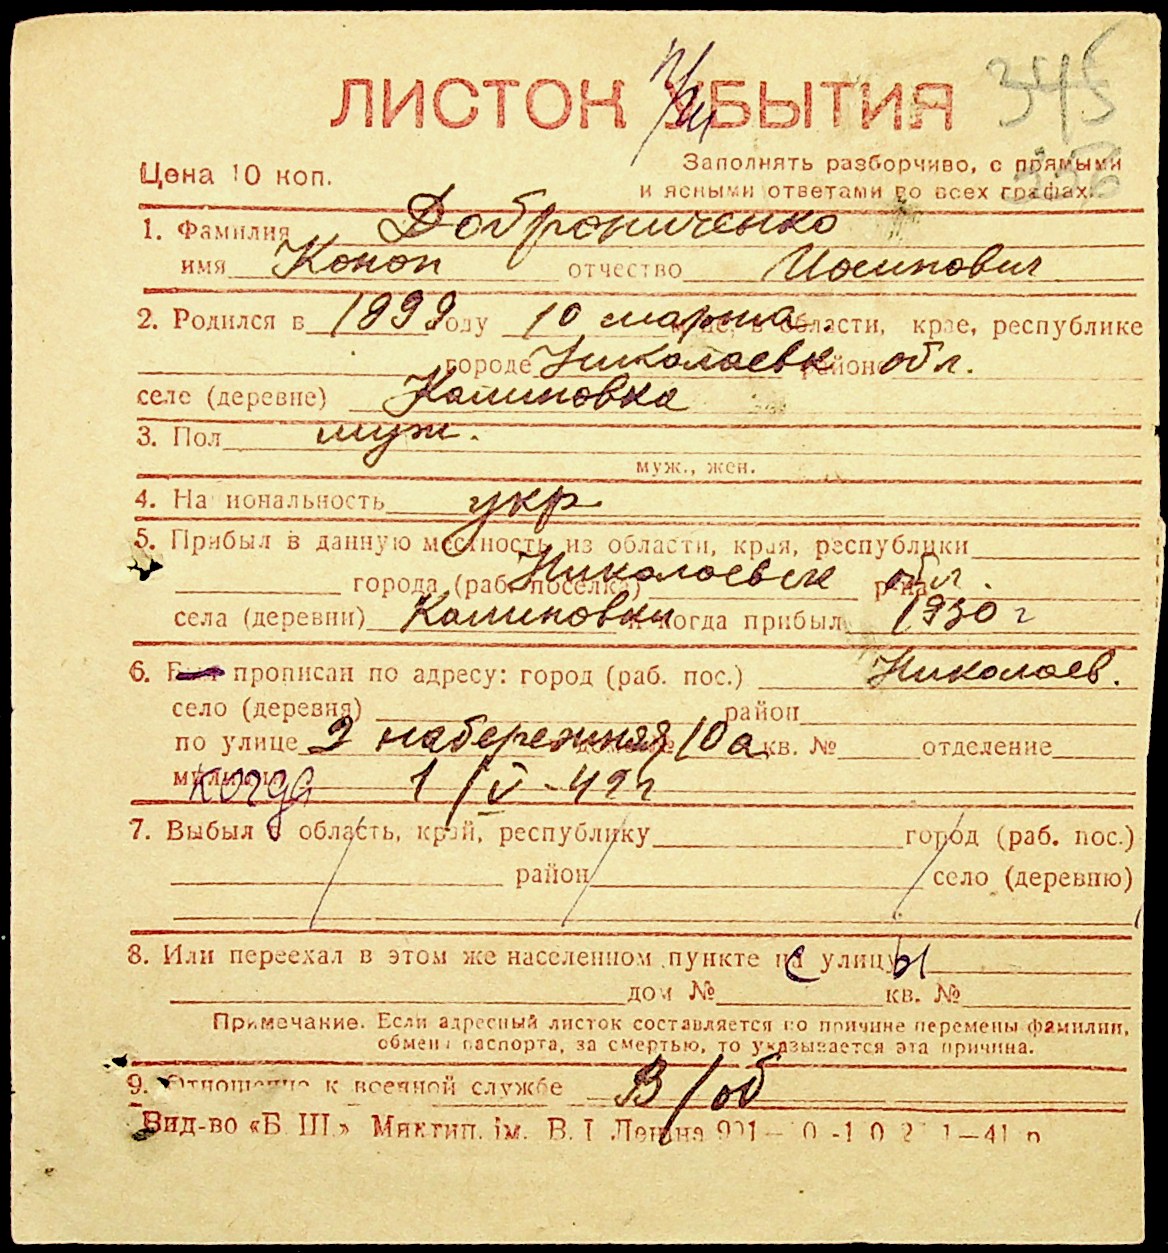 ЛИСТОК УБЫТИЯ
345
Цена 10 коп.
Заполнять разборчиво, с прямыми
и ясными ответами во всех графах.
1. Фамилия Доброниченко
имя Конон отчество Иосипович
2. Родился в 1899 году 10 марта мце, в области, крае, республике
городе Николаевск районе обл.
селе (деревне) Калиновка
3. Пол муж.
муж., жен.
4. Национальность укр
5. Прибыл в данную местность из области, края, республики
города (раб. поселка) Николаевск р-на обл.
села (деревни) Калиновки и когда прибыл 1930 г
6. Был прописан по адресу: город (раб. пос.) Николаев.
село (деревня) район
по улице 2 набережняя 10а кв. № отделение
милиции когда 1/V-42г
7. Выбыл в область, край, республику город (раб. пос.)
район село (деревню)
8. Или переехал в этом же населенном пункте на с улицу ы
дом № кв. №
Примечание. Если адресный листок составляется по причине перемены фамилии,
обмена паспорта, за смертью, то указывается эта причина.
9. Отношение к военной службе В/об
Вид-во «Б Ш» Мяктип. ім. В. І Леніна